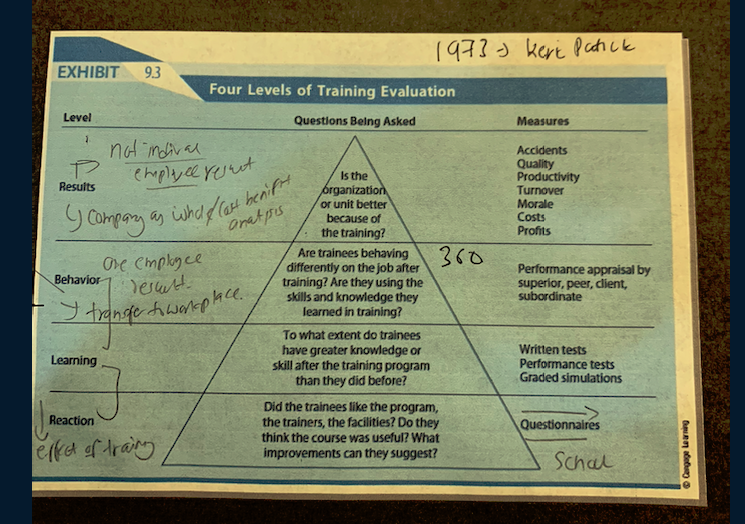 1973 → Keri Patick
EXHIBIT 9.3
Four Levels of Training Evaluation
Level
Questions Being Asked
Measures
not
employee result
Results
Company as whole/cost benifit
analysis
Is the
organization
or unit better
because of
the training?
Accidents
Quality
Productivity
Turnover
Morale
Costs
Profits
one employee
result.
Behavior
transfer to workplace.
Are trainees behaving
differently on the job after
training? Are they using the
skills and knowledge they
learned in training?
360
Performance appraisal by
superior, peer, client,
subordinate
Learning
To what extent do trainees
have greater knowledge or
skill after the training program
than they did before?
Written tests
Performance tests
Graded simulations
Reaction
effect of training
Did the trainees like the program,
the trainers, the facilities? Do they
think the course was useful? What
improvements can they suggest?
Questionnaires
© Cengage Learning